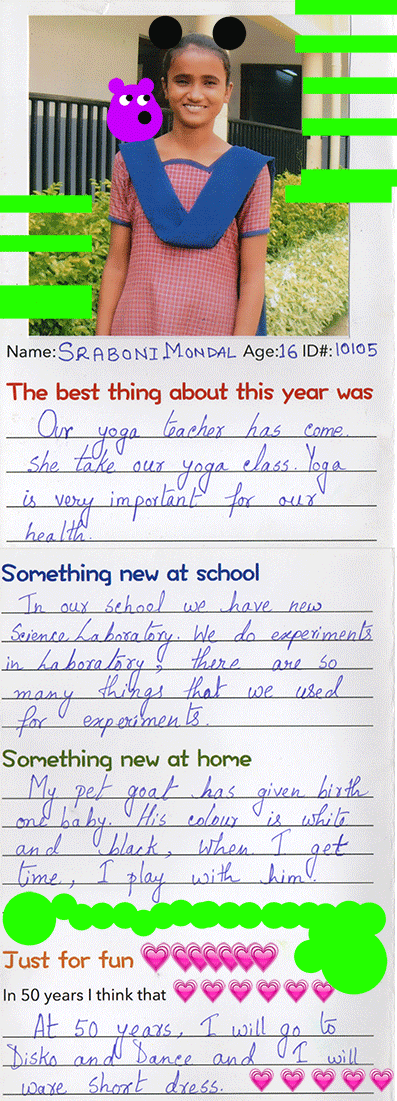 Name: SRABONI MONDAL Age: 16 ID#: 10105
The best thing about this year was
Our yoga teacher has come.
She take our yoga class. Yoga
is very important for our
health.
Something new at school
In our school we have new
Science Laboratory. We do experiments
in Laboratory, there are so
many things that we used
for experiments.
Something new at home
My pet goat has given birth
one baby. His colour is white
and black, When I get
time, I play with him.
Just for fun
In 50 years I think that
At 50 years, I will go to
Disko and Dance and I will
ware short dress.